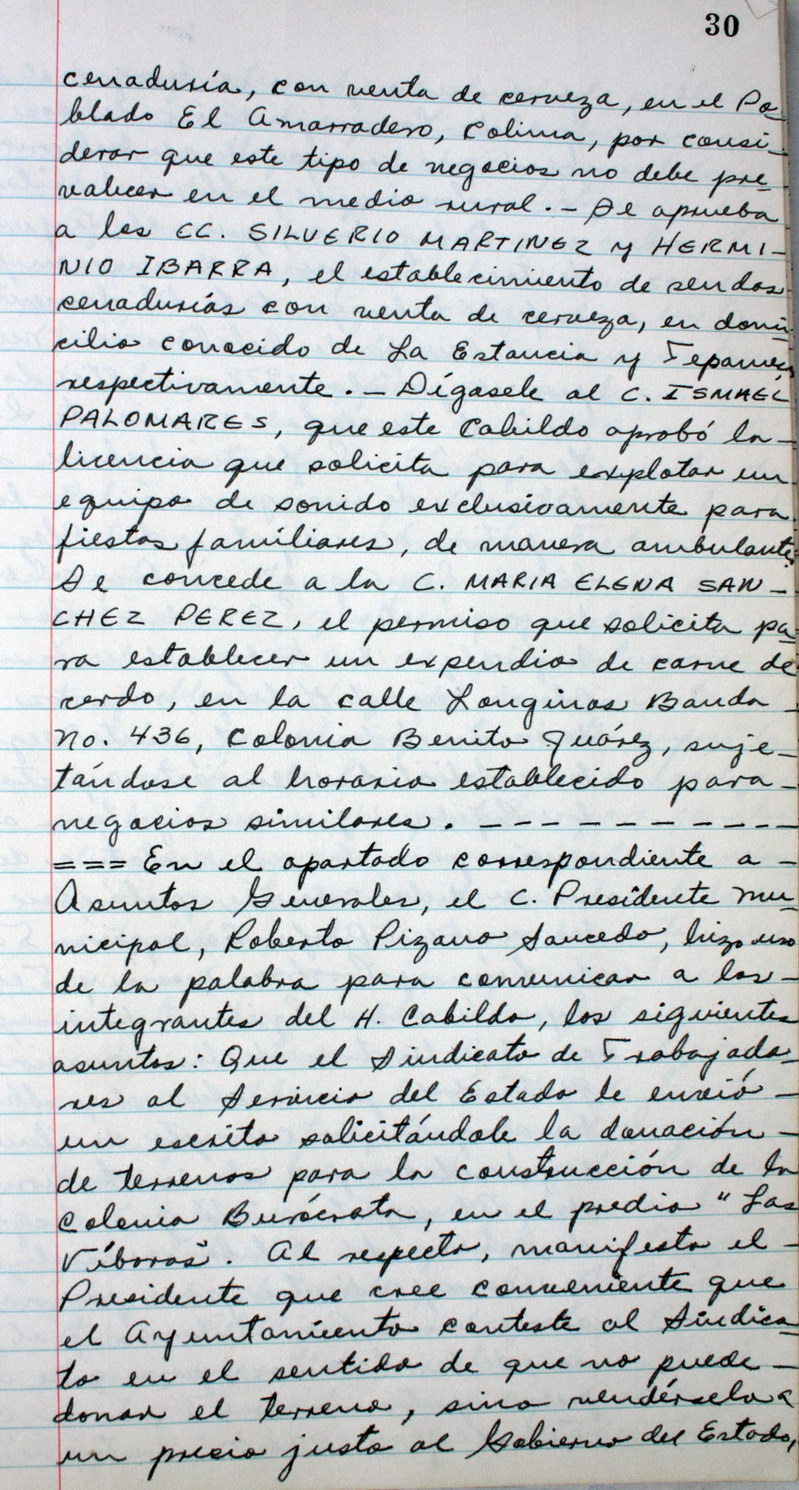 30
cenaduría, con venta de cerveza, en el Po-
blado El Amarradero, Colima, por consi-
derar que este tipo de negocios no debe pre-
valecer en el medio rural.- Se aprueba
a los CC. SILVERIO MARTINEZ y HERMI-
NIO IBARRA, el establecimiento de sendas
cenadurías con venta de cerveza, en domi-
cilio conocido de La Estancia y Tepames
respectivamente.- Dígasele al C. ISMAEL
PALOMARES, que este Cabildo aprobó la-
licencia que solicita para explotar un
equipo de sonido exclusivamente para
fiestas familiares, de manera ambulante.
Se concede a la C. MARIA ELENA SAN-
CHEZ PEREZ, el permiso que solicita pa-
ra establecer un expendio de carne de
cerdo, en la calle Longinos Banda -
No. 436, Colonia Benito Juárez, suje-
tándose al horario establecido para-
negocios similares. - - - - - - - - - -
=== En el apartado correspondiente a -
Asuntos Generales, el C. Presidente Mu-
nicipal, Roberto Pizano Saucedo, hizo uso
de la palabra para comunicar a los-
integrantes del H. Cabildo, los siguientes
asuntos: Que el Sindicato de Trabajado-
res al Servicio del Estado le envió -
un escrito solicitándole la donación -
de terrenos para la construcción de la
Colonia Burócrata, en el predio "Las
Víboras". Al respecto, manifestó el -
Presidente que cree conveniente que
el Ayuntamiento conteste al Sindica-
to en el sentido de que no puede -
donar el terreno, sino vendérselo a
un precio justo al Gobierno del Estado,